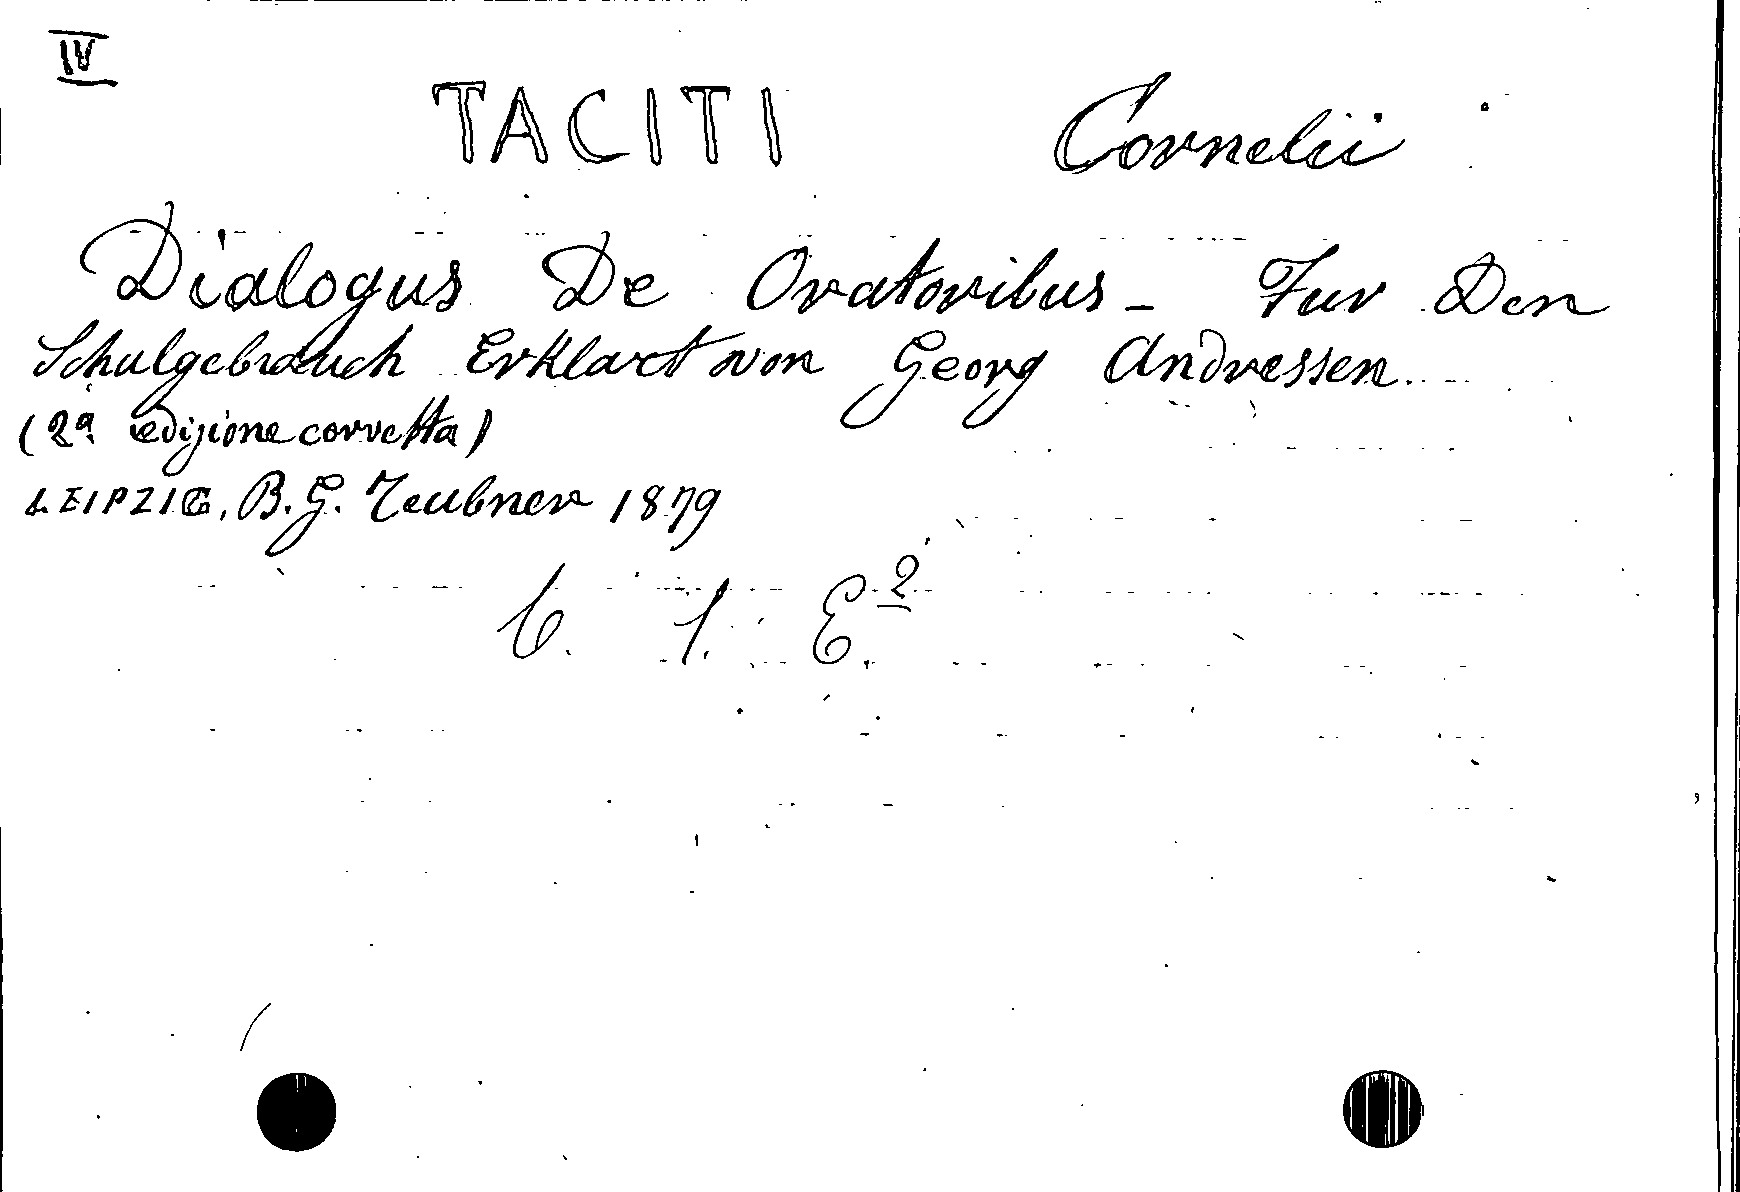 IV
TACITI Cornelii
Dialogus De Oratoribus - Fur Den
Schulgebrauch Erklart von Georg Andressen
(2ª edizione corretta)
LEIPZIG, B.G. Teubner 1879
6. 1. E.2